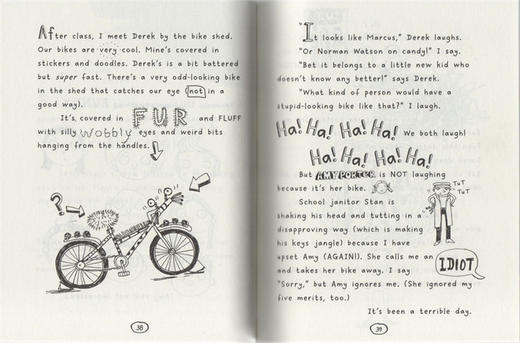 After class, I meet Derek by the bike shed.
Our bikes are very cool. Mine's covered in
stickers and doodles. Derek's is a bit battered
but super fast. There's a very odd-looking bike
in the shed that catches our eye (not in a
good way).
It's covered in FUR and FLUFF
with silly wobbly eyes and weird bits
hanging from the handles.
?
38
"It looks like Marcus," Derek laughs.
"Or Norman Watson on candy!" I say.
"Bet it belongs to a little new kid who
doesn't know any better!" says Derek.
"What kind of person would have a
stupid-looking bike like that?" I laugh.
Ha! Ha! Ha! Ha! We both laugh!
Ha! Ha! Ha! Ha!
But AMY PORTER is NOT laughing
because it's her bike.
TUT TUT
School janitor Stan is
shaking his head and tutting in a
disapproving way (which is making
his keys jangle) because I have
upset Amy (AGAIN!). She calls me an IDIOT
and takes her bike away. I say
"Sorry," but Amy ignores me. (She ignored my
five merits, too.)
It's been a terrible day.
39